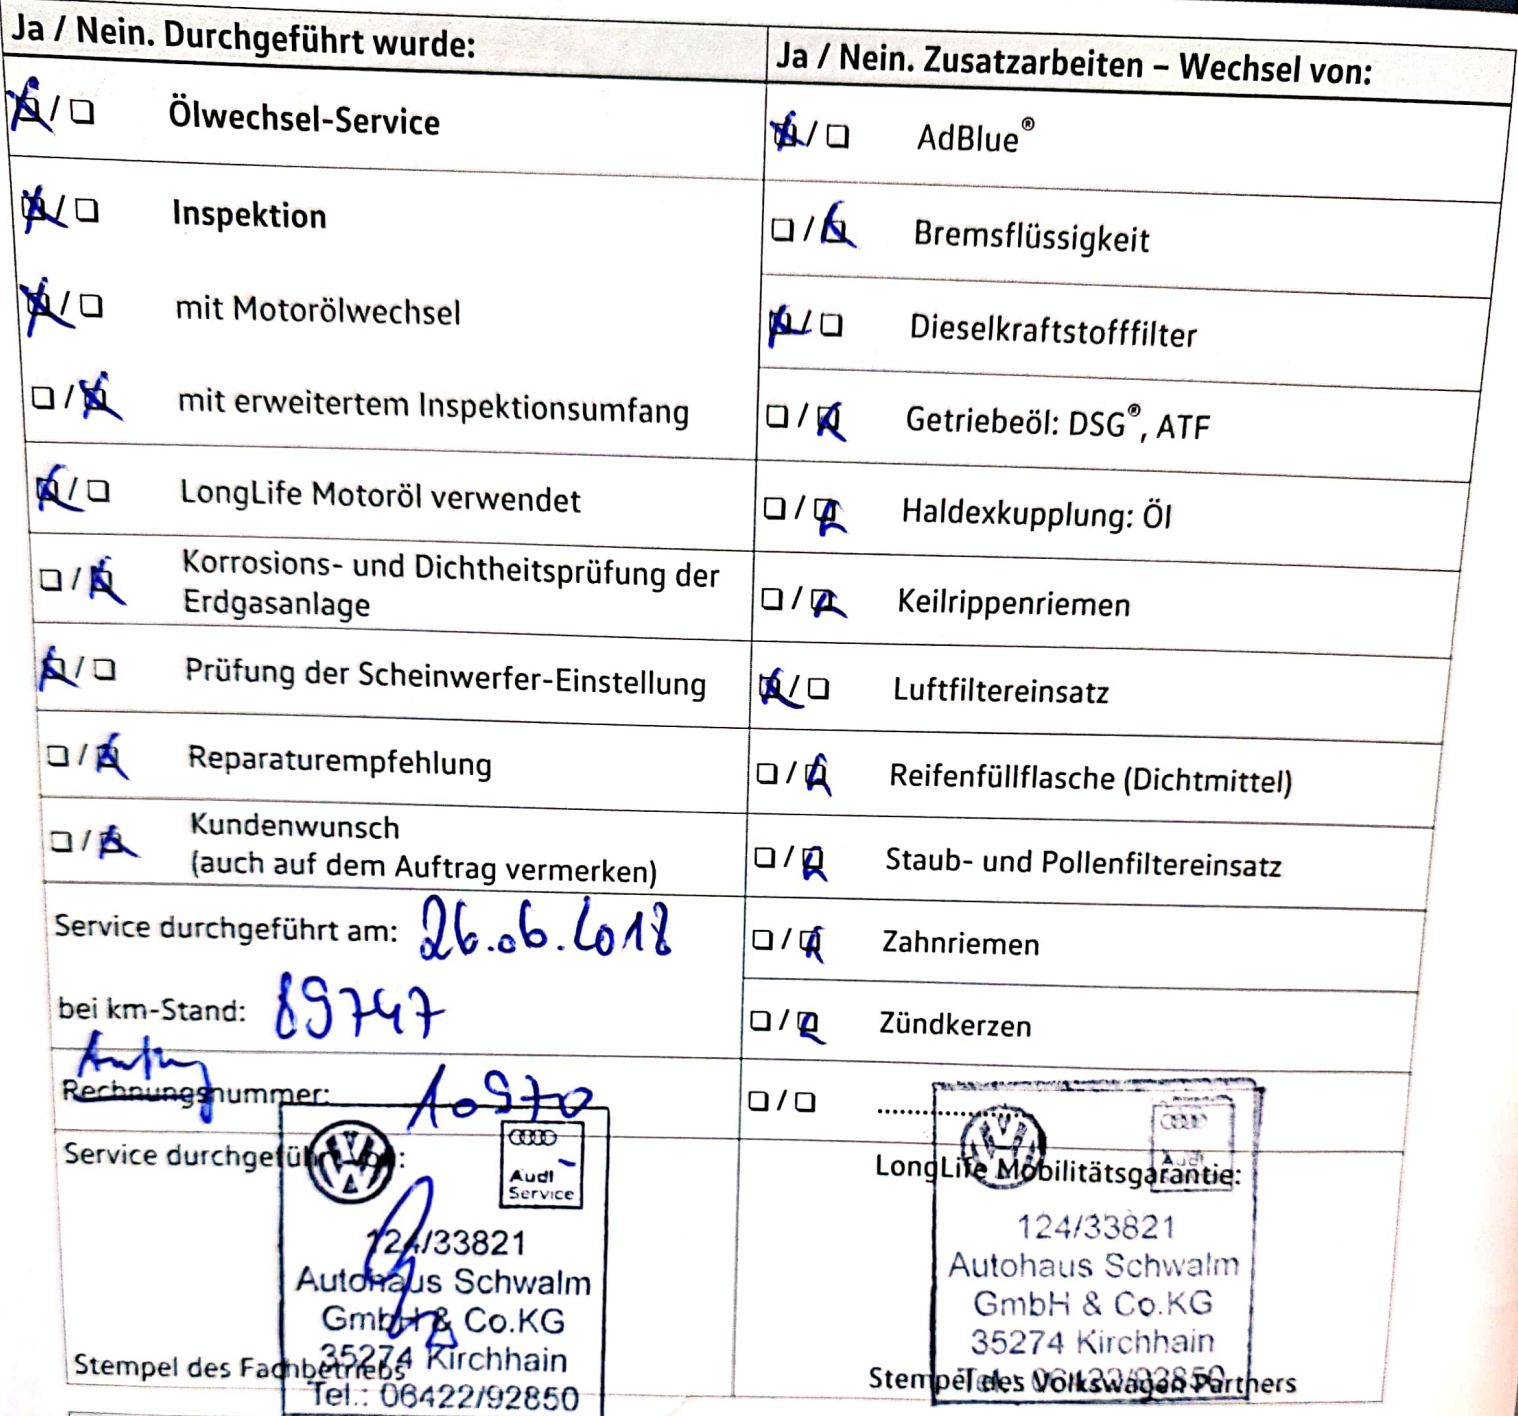 Ja / Nein. Durchgeführt wurde:
Ölwechsel-Service
Inspektion
mit Motorölwechsel
mit erweitertem Inspektionsumfang
LongLife Motoröl verwendet
Korrosions- und Dichtheitsprüfung der
Erdgasanlage
Prüfung der Scheinwerfer-Einstellung
Reparaturempfehlung
Kundenwunsch
(auch auf dem Auftrag vermerken)
Service durchgeführt am: 26.06.2018
bei km-Stand: 89747
Rechnungsnummer: 10970
Service durchgeführt von:
Audi
Service
124/33821
Autohaus Schwalm
GmbH & Co.KG
35274 Kirchhain
Stempel des Fachbetriebs
Tel.: 06422/92850
Ja / Nein. Zusatzarbeiten – Wechsel von:
AdBlue®
Bremsflüssigkeit
Dieselkraftstofffilter
Getriebeöl: DSG®, ATF
Haldexkupplung: Öl
Keilrippenriemen
Luftfiltereinsatz
Reifenfüllflasche (Dichtmittel)
Staub- und Pollenfiltereinsatz
Zahnriemen
Zündkerzen
....................
Audi
LongLife Mobilitätsgarantie:
124/33821
Autohaus Schwalm
GmbH & Co.KG
35274 Kirchhain
Tel.: 06422/92850
Stempel des Volkswagen Partners